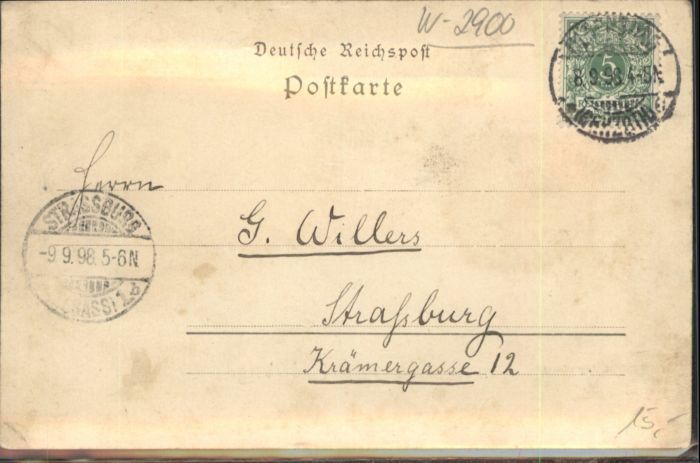 W-2900
Deutsche Reichspost
Postkarte
5
8.9.98.4-5N.
Herrn
STRASSBURG
-9 9.98.5-6N.
G. Willers
Straßburg
Krämergasse 12
15,-